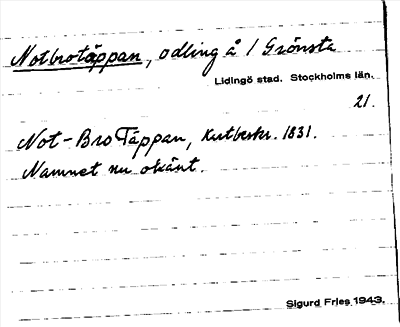 Notbrotäppan, odling å 1 Grönsta
Lidingö stad. Stockholms län.
21.
Not-Bro Täppan, Kartbeskr. 1831.
Namnet nu okänt.
Sigurd Fries 1943.